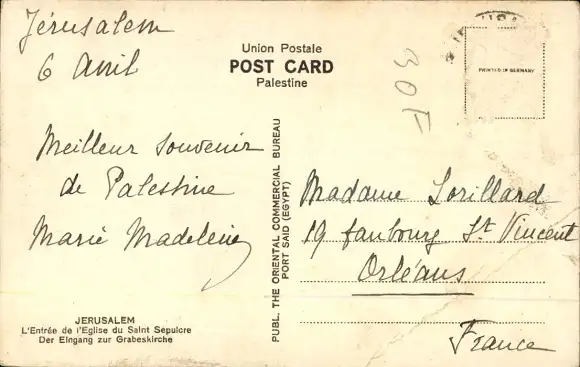 Jérusalem
6 Avril
Meilleur souvenir
de Palestine
Marie Madeleine
Union Postale
POST CARD
Palestine
30F
PRINTED IN GERMANY
PUBL. THE ORIENTAL COMMERCIAL BUREAU
PORT SAID (EGYPT)
Madame Lorillard
19 faubourg St Vincent
Orléans
France
JERUSALEM
L'Entrée de l'Eglise du Saint Sepulcre
Der Eingang zur Grabeskirche